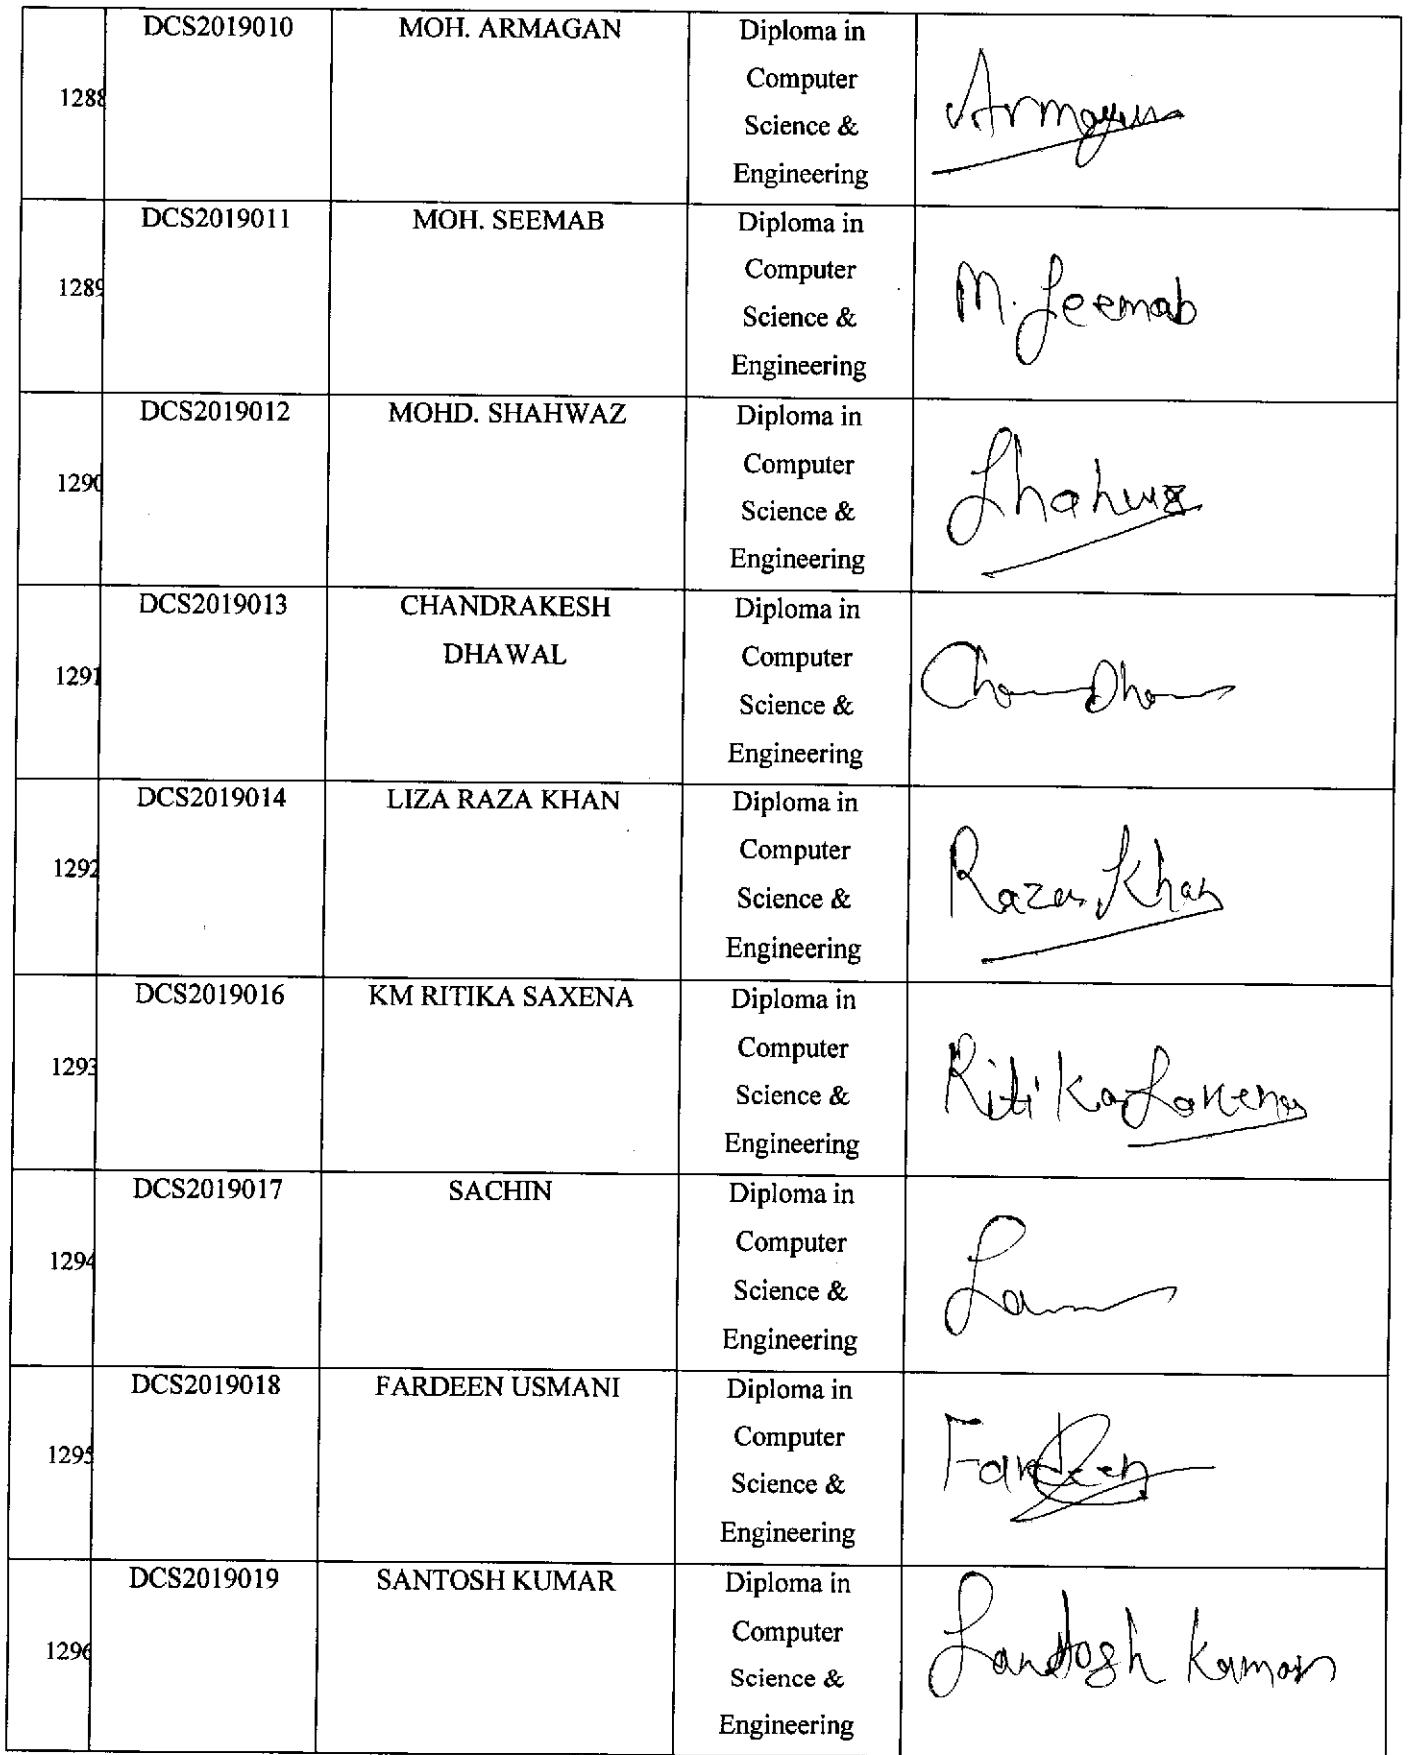 DCS2019010 MOH. ARMAGAN Diploma in
Computer
1288
Science &
Engineering
Armagan
DCS2019011 MOH. SEEMAB Diploma in
Computer
1289
Science &
Engineering
M. Seemab
DCS2019012 MOHD. SHAHWAZ Diploma in
Computer
1290
Science &
Engineering
Shahwz
DCS2019013 CHANDRAKESH Diploma in
DHAWAL Computer
1291
Science &
Engineering
DCS2019014 LIZA RAZA KHAN Diploma in
Computer
1292
Science &
Engineering
Raza Khan
DCS2019016 KM RITIKA SAXENA Diploma in
Computer
1293
Science &
Engineering
Ritika Saxena
DCS2019017 SACHIN Diploma in
Computer
1294
Science &
Engineering
DCS2019018 FARDEEN USMANI Diploma in
Computer
1295
Science &
Engineering
Fardeen
DCS2019019 SANTOSH KUMAR Diploma in
Computer
1296
Science &
Engineering
Santosh Kumar